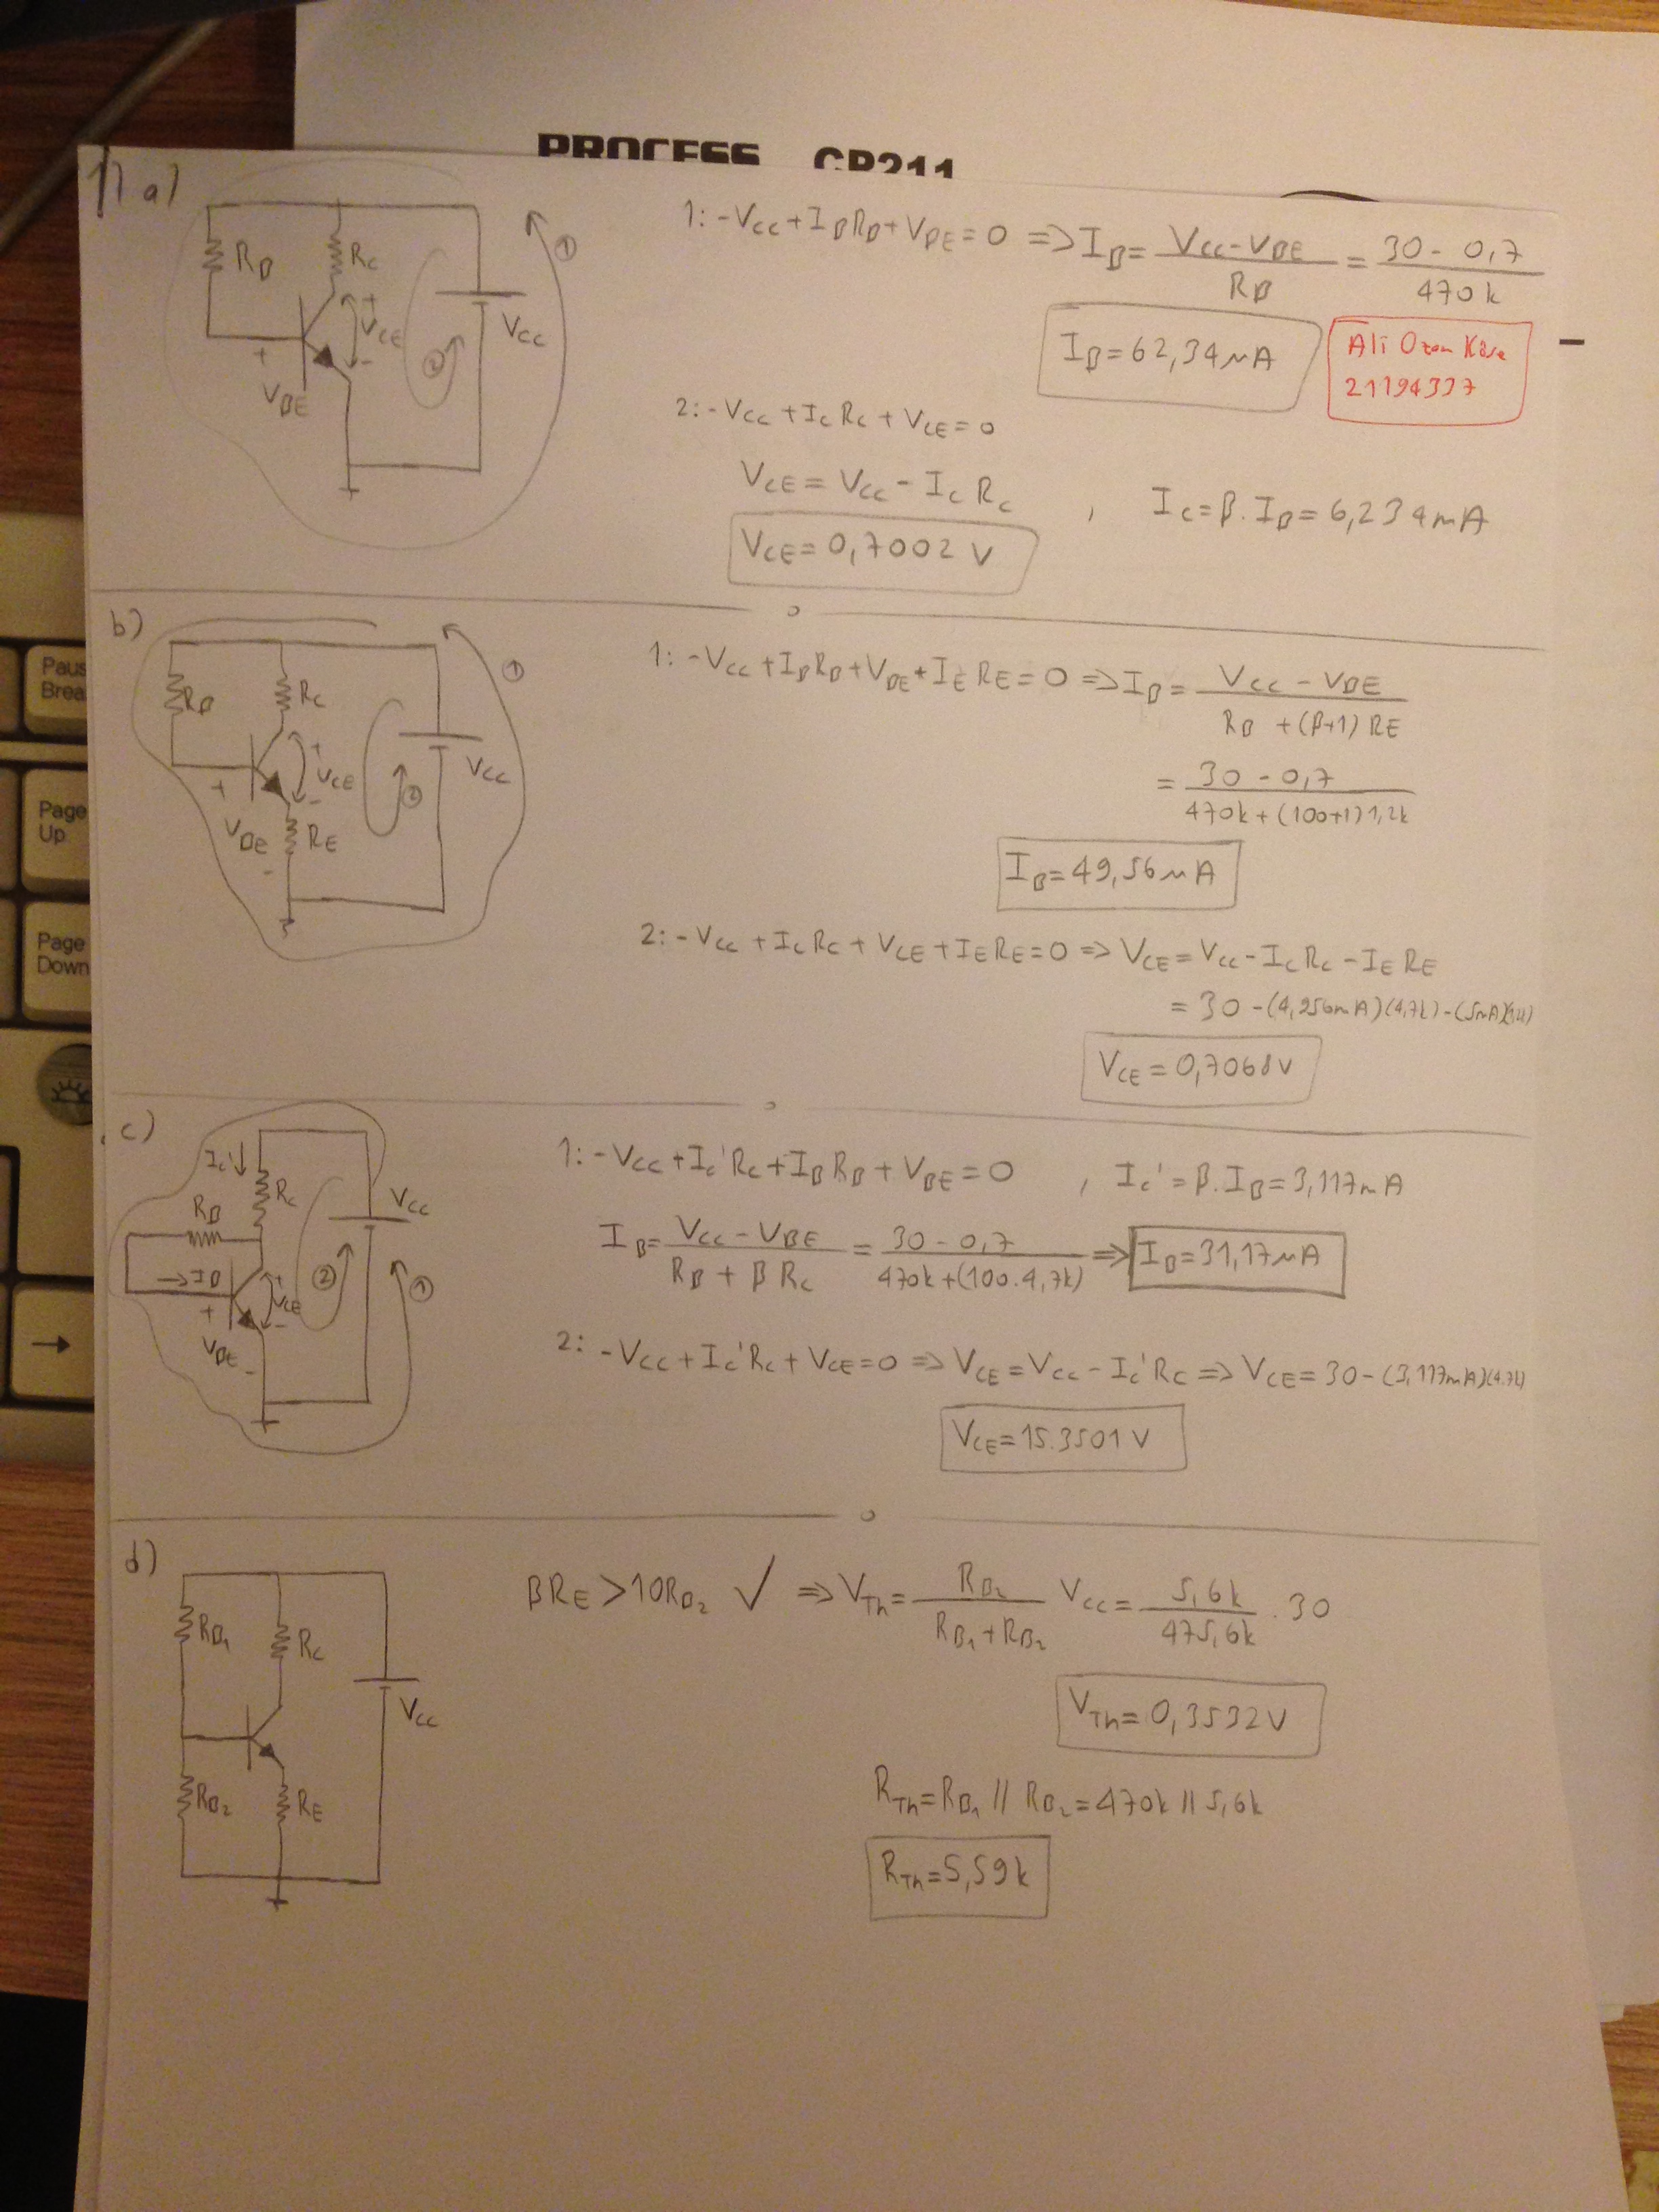 PROCESS CP211
1) a)
RB
RC
+
VCE
-
+
VBE
VCC
1
2
1: -VCC + IB RB + VBE = 0 => IB = VCC - VBE / RB = 30 - 0,7 / 470k
IB = 62,34 μA
Ali Ozan Köse
21194337
2: -VCC + IC RC + VCE = 0
VCE = VCC - IC RC , IC = β . IB = 6,234 mA
VCE = 0,7002 V
b)
RB
RC
+
VCE
-
+
VBE
-
RE
VCC
1
2
1: -VCC + IB RB + VBE + IE RE = 0 => IB = VCC - VBE / RB + (β+1) RE
= 30 - 0,7 / 470k + (100+1) 1,2k
IB = 49,56 μA
2: -VCC + IC RC + VCE + IE RE = 0 => VCE = VCC - IC RC - IE RE
= 30 - (4,956mA)(4,7k) - (5mA)
VCE = 0,7068 V
c)
IC'
RC
RB
IB
+
VCE
-
+
VBE
-
VCC
2
1
1: -VCC + IC' RC + IB RB + VBE = 0 , IC' = β . IB = 3,117mA
IB = VCC - VBE / RB + β RC = 30 - 0,7 / 470k + (100 . 4,7k) => IB = 31,17 μA
2: -VCC + IC' RC + VCE = 0 => VCE = VCC - IC' RC => VCE = 30 - (3,117mA)(4.7k)
VCE = 15.3501 V
d)
RB1
RC
RB2
RE
VCC
βRE > 10RB2 ✓ => VTh = RB2 / RB1 + RB2 VCC = 5,6k / 475,6k . 30
VTh = 0,3532 V
RTh = RB1 // RB2 = 470k // 5,6k
RTh = 5,59k
Paus
Brea
Page
Up
Page
Down
→